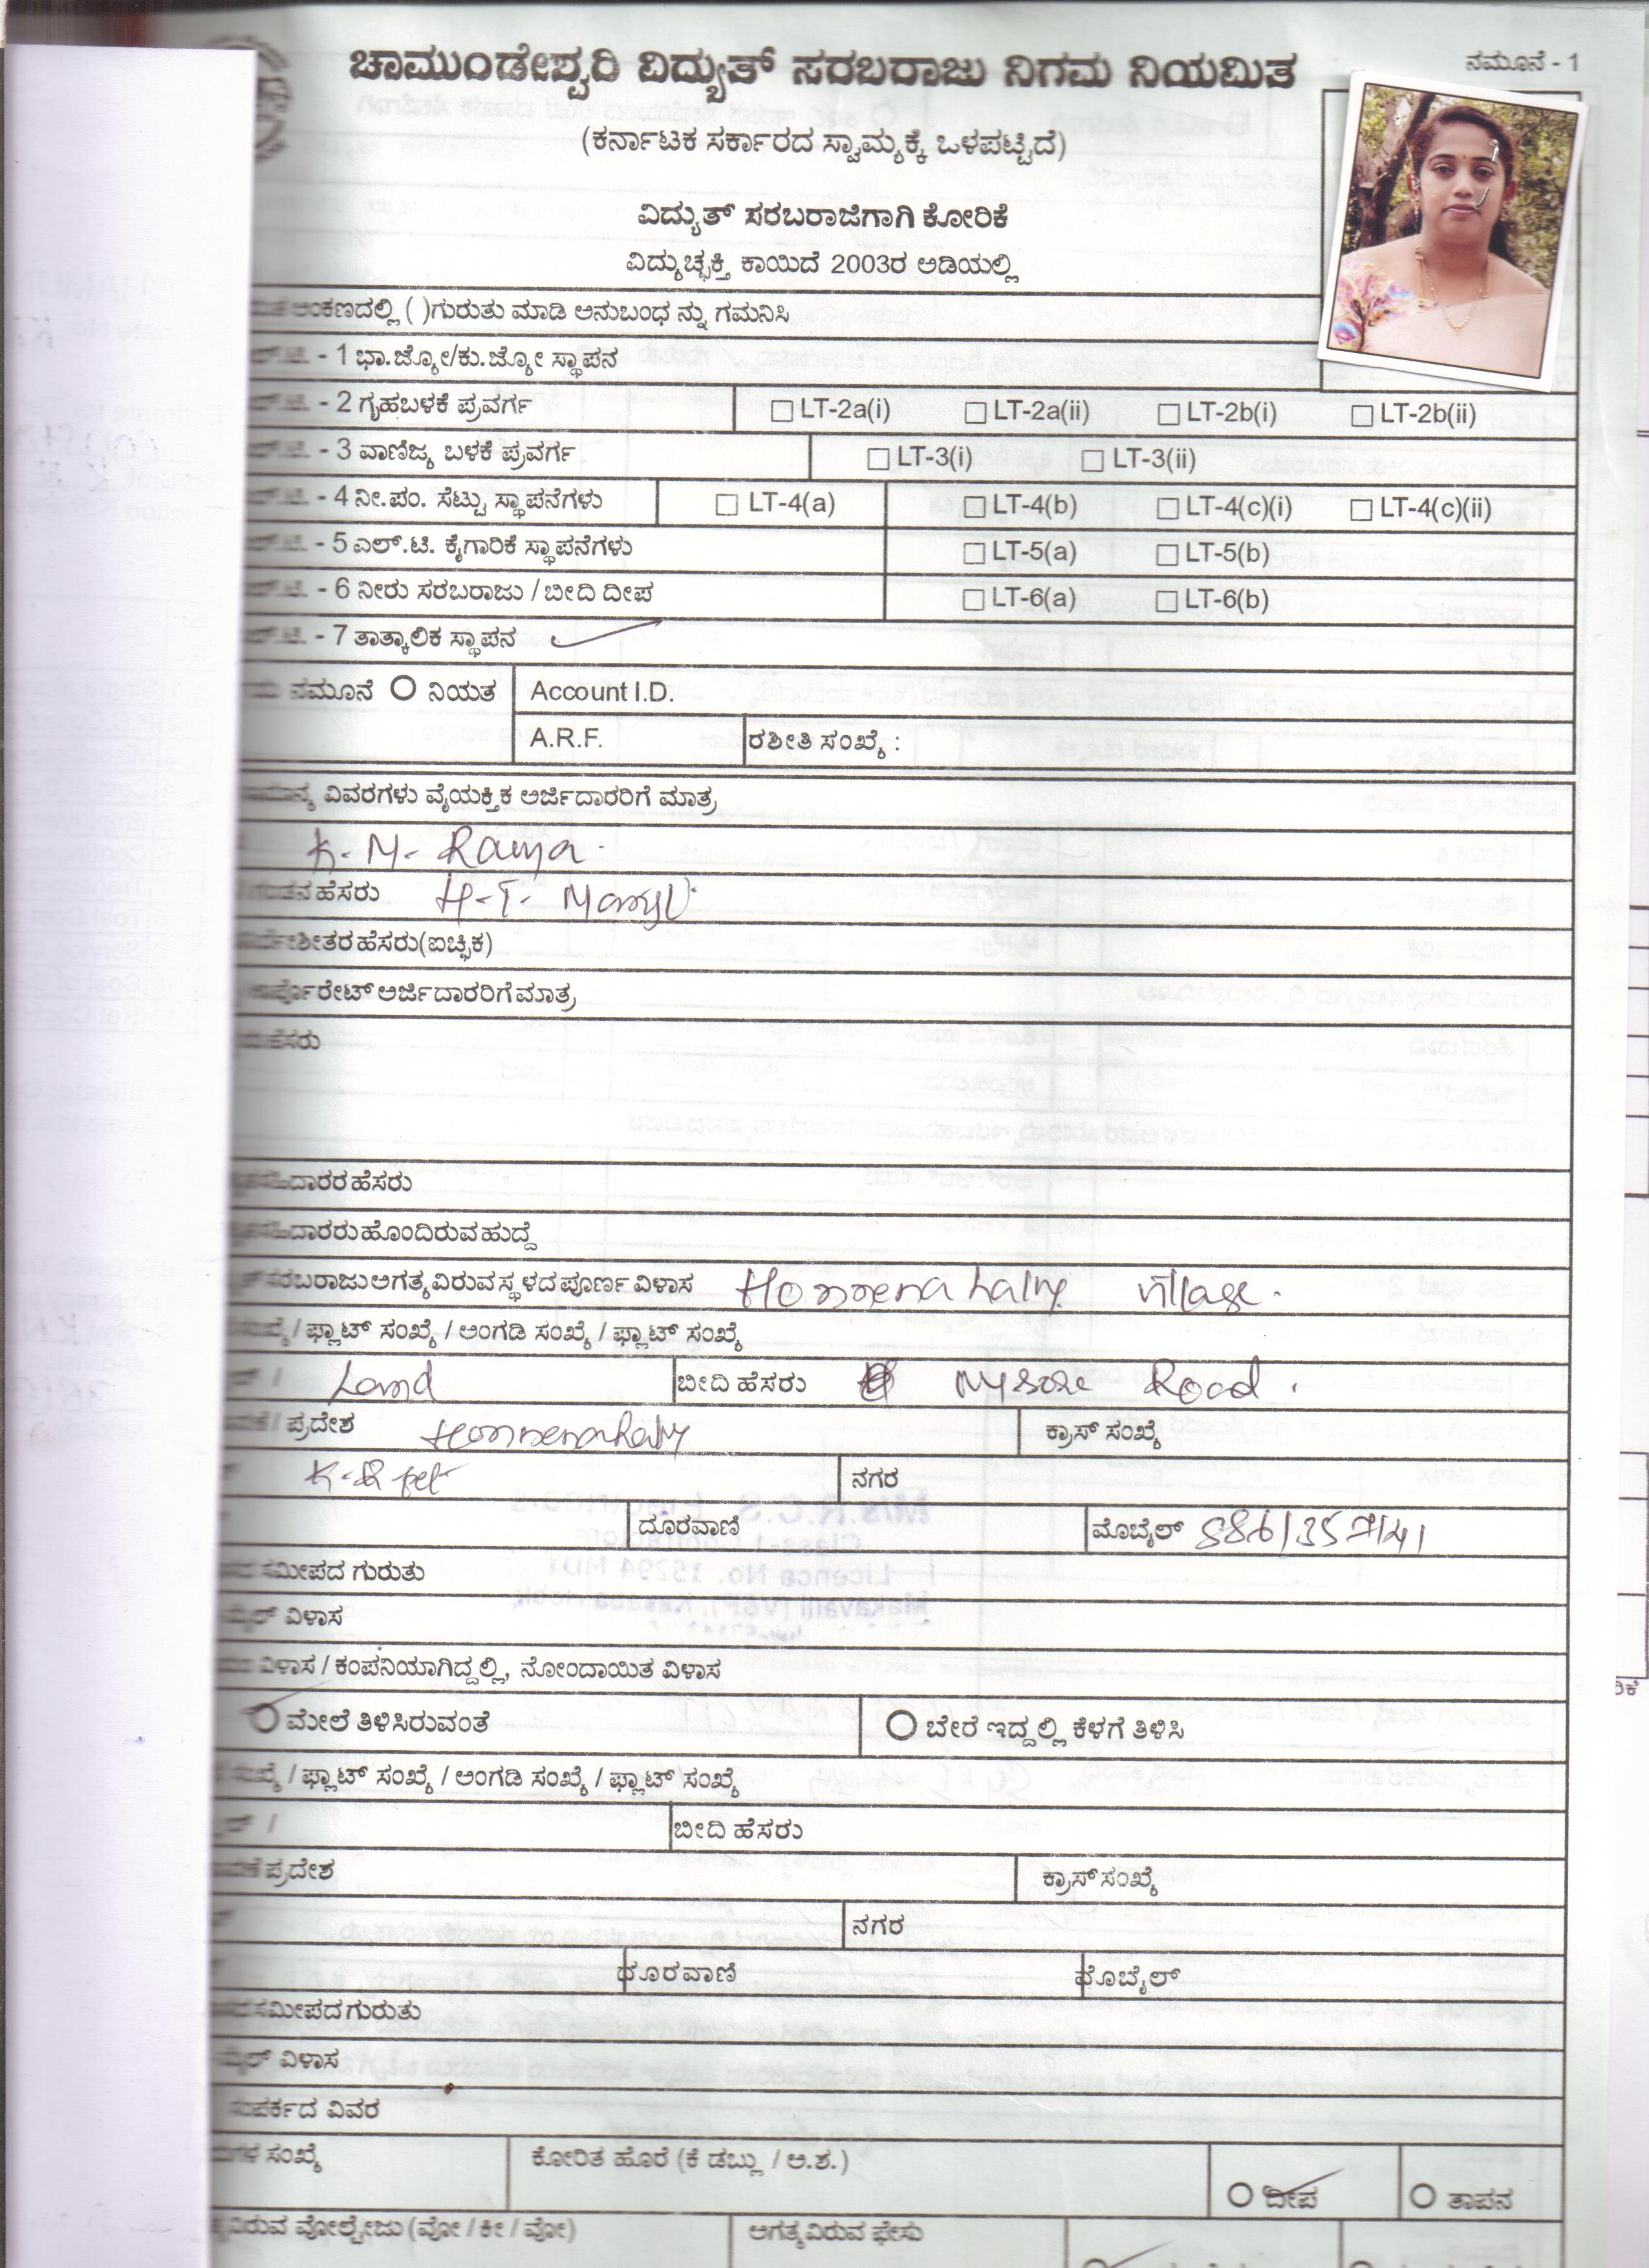 ನಮೂನೆ - 1
ಚಾಮುಂಡೇಶ್ವರಿ ವಿದ್ಯುತ್ ಸರಬರಾಜು ನಿಗಮ ನಿಯಮಿತ
(ಕರ್ನಾಟಕ ಸರ್ಕಾರದ ಸ್ವಾಮ್ಯಕ್ಕೆ ಒಳಪಟ್ಟಿದೆ)
ವಿದ್ಯುತ್ ಸರಬರಾಜಿಗಾಗಿ ಕೋರಿಕೆ
ವಿದ್ಯುಚ್ಛಕ್ತಿ ಕಾಯಿದೆ 2003ರ ಅಡಿಯಲ್ಲಿ
ಅಂಕಣದಲ್ಲಿ ( )ಗುರುತು ಮಾಡಿ ಅನುಬಂಧ ನ್ನು ಗಮನಿಸಿ
- 1 ಭಾ.ಜ್ಯೋ/ಕು.ಜ್ಯೋ ಸ್ಥಾಪನ
- 2 ಗೃಹಬಳಕೆ ಪ್ರವರ್ಗ LT-2a(i) LT-2a(ii) LT-2b(i) LT-2b(ii)
- 3 ವಾಣಿಜ್ಯ ಬಳಕೆ ಪ್ರವರ್ಗ LT-3(i) LT-3(ii)
- 4 ನೀ.ಪಂ. ಸೆಟ್ಟು ಸ್ಥಾಪನೆಗಳು LT-4(a) LT-4(b) LT-4(c)(i) LT-4(c)(ii)
- 5 ಎಲ್.ಟಿ. ಕೈಗಾರಿಕೆ ಸ್ಥಾಪನೆಗಳು LT-5(a) LT-5(b)
- 6 ನೀರು ಸರಬರಾಜು / ಬೀದಿ ದೀಪ LT-6(a) LT-6(b)
- 7 ತಾತ್ಕಾಲಿಕ ಸ್ಥಾಪನ
ನಮೂನೆ ನಿಯತ Account I.D.
A.R.F. ರಶೀತಿ ಸಂಖ್ಯೆ :
ವಿವರಗಳು ವೈಯಕ್ತಿಕ ಅರ್ಜಿದಾರರಿಗೆ ಮಾತ್ರ
K. M. Ramya
ಹೆಸರು H.T.
ಹೆಸರು(ಐಚ್ಛಿಕ)
ಅರ್ಜಿದಾರರಿಗೆ ಮಾತ್ರ
ಹೆಸರು
ಹೆಸರು
ಹೊಂದಿರುವ ಹುದ್ದೆ
ಸರಬರಾಜು ಅಗತ್ಯವಿರುವ ಸ್ಥಳದ ಪೂರ್ಣ ವಿಳಾಸ Honnenahally village.
/ ಫ್ಲಾಟ್ ಸಂಖ್ಯೆ / ಅಂಗಡಿ ಸಂಖ್ಯೆ / ಫ್ಲಾಟ್ ಸಂಖ್ಯೆ
/ Land ಬೀದಿ ಹೆಸರು Mysore Road.
/ ಪ್ರದೇಶ Honnenahally ಕ್ರಾಸ್ ಸಂಖ್ಯೆ
K-R pet ನಗರ
ದೂರವಾಣಿ ಮೊಬೈಲ್ 8861357141
ಸಮೀಪದ ಗುರುತು
ವಿಳಾಸ
ವಿಳಾಸ / ಕಂಪನಿಯಾಗಿದ್ದಲ್ಲಿ, ನೋಂದಾಯಿತ ವಿಳಾಸ
ಮೇಲೆ ತಿಳಿಸಿರುವಂತೆ ಬೇರೆ ಇದ್ದಲ್ಲಿ ಕೆಳಗೆ ತಿಳಿಸಿ
/ ಫ್ಲಾಟ್ ಸಂಖ್ಯೆ / ಅಂಗಡಿ ಸಂಖ್ಯೆ / ಫ್ಲಾಟ್ ಸಂಖ್ಯೆ
/ ಬೀದಿ ಹೆಸರು
ಪ್ರದೇಶ ಕ್ರಾಸ್ ಸಂಖ್ಯೆ
ನಗರ
ದೂರವಾಣಿ ಮೊಬೈಲ್
ಸಮೀಪದ ಗುರುತು
ವಿಳಾಸ
ಸಂಪರ್ಕದ ವಿವರ
ಸಂಖ್ಯೆ ಕೋರಿತ ಹೊರೆ (ಕೆ ಡಬ್ಲ್ಯು / ಅ.ಶ.) ದೀಪ ತಾಪನ
ವೋಲ್ಟೇಜು (ವೋ / ಕೀ / ವೋ) ಅಗತ್ಯವಿರುವ ಫೇಸು